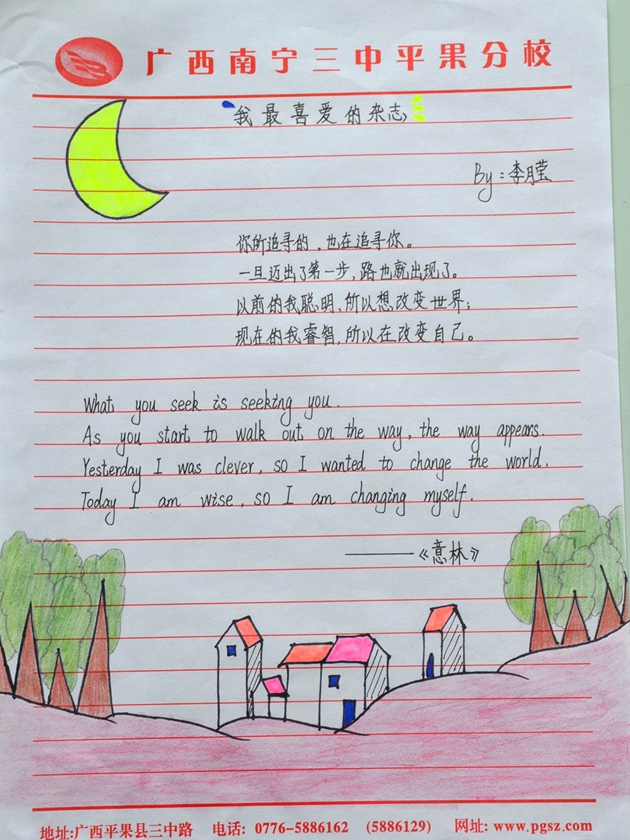 广西南宁三中平果分校
我最喜爱的杂志
By:李月莹
你所追寻的,也在追寻你。
一旦迈出了第一步,路也就出现了。
以前的我聪明,所以想改变世界;
现在的我睿智,所以在改变自己。
What you seek is seeking you.
As you start to walk out on the way, the way appears.
Yesterday I was clever, so I wanted to change the world.
Today I am wise, so I am changing myself.
——《意林》
地址:广西平果县三中路 电话: 0776-5886162 (5886129) 网址: www.pgsz.com